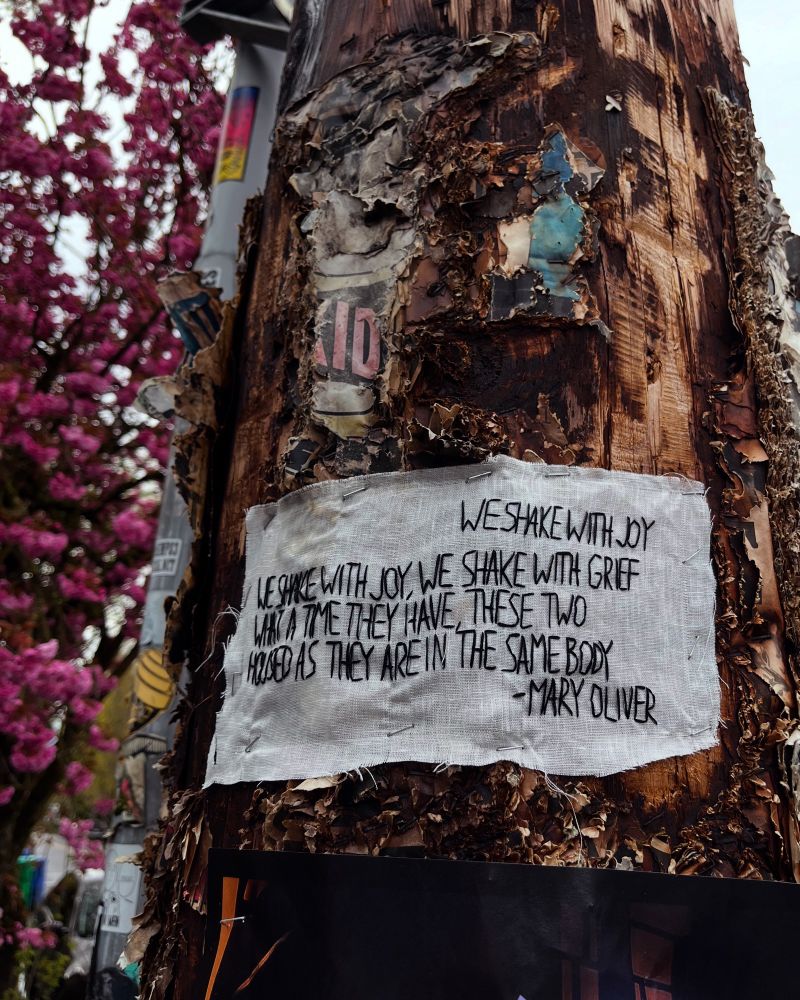 WE SHAKE WITH JOY
WE SHAKE WITH JOY, WE SHAKE WITH GRIEF
WHAT A TIME THEY HAVE, THESE TWO
HOUSED AS THEY ARE IN THE SAME BODY
-MARY OLIVER